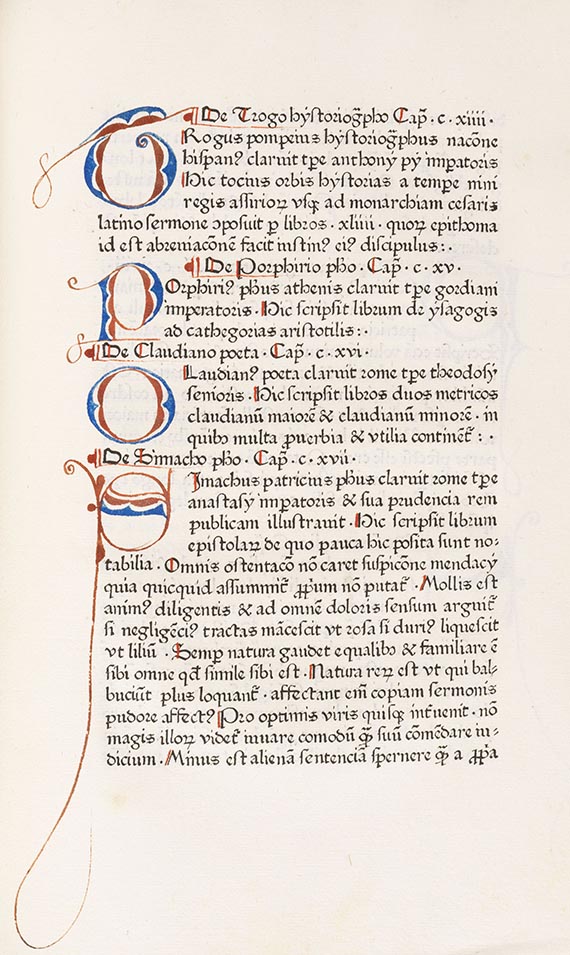 De Trogo hystoriog̃pho Cap̃ · c · xiiii ·
TRogus pompeius hystoriog̃phus nacõne
hispanꝰ claruit tp̃e anthonÿ pÿ imp̱atoris
Hic tocius orbis hystorias a tempe nini
regis assirioꝝ vsqꝫ ad monarchiam cesaris
latino sermone ɔposuit ꝑ libros · xliiii · quoꝝ epithoma
id est abreuiacõnẽ facit iustinꝰ eiꝰ discipulus : ·
De Porphirio pho · Cap̃ · c · xv ·
POrphiriꝰ pħus athenis claruit tp̃e gordiani
imꝑatoris · Hic scripsit librum de ysagogis
ad cathegorias aristotilis : ·
De Claudiano poeta · Cap̃ · c · xvi ·
CLaudianꝰ poeta claruit rome tp̃e theodosÿ
senioris · Hic scripsit libros duos metricos
claudianũ maiorẽ & claudianũ minorẽ · in
quibo multa ꝓuerbia & vtilia continet̃ : ·
De Simacho pho · Cap̃ · c · xvii ·
SImachus patricius pħus claruit rome tp̃e
anastasÿ imꝑatoris & sua prudencia rem
publicam illustrauit · Hic scripsit librum
epistolaꝝ de quo pauca hic posita sunt no⸗
tabilia · Omnis ostentacõ nõ caret suspicõne mendacÿ
quia quicquid assummit̃ ꝓpͥum nõ putat̃ · Mollis est
animꝰ diligentis & ad omnẽ doloris sensum arguit̃
si negligẽciꝰ tractas mãcescit vt rosa si duriꝰ liquescit
vt liliũ · Semꝑ natura gaudet equalibo & familiare ẽ
sibi omne qd̃ simile sibi est · Natura reꝝ est vt qui bal⸗
buciũt plus loquant̃ · affectant em̃ copiam sermonis
pudore affectꝰ Pro optimis viris quisqꝫ int̃uenit · nõ
magis illoꝝ videt̃ iuuare comodũ q̃ꝫ suũ cõmẽdare iu⸗
dicium · Minus est alienã sentenciã spernere q̃ꝫ a ꝓpͥa